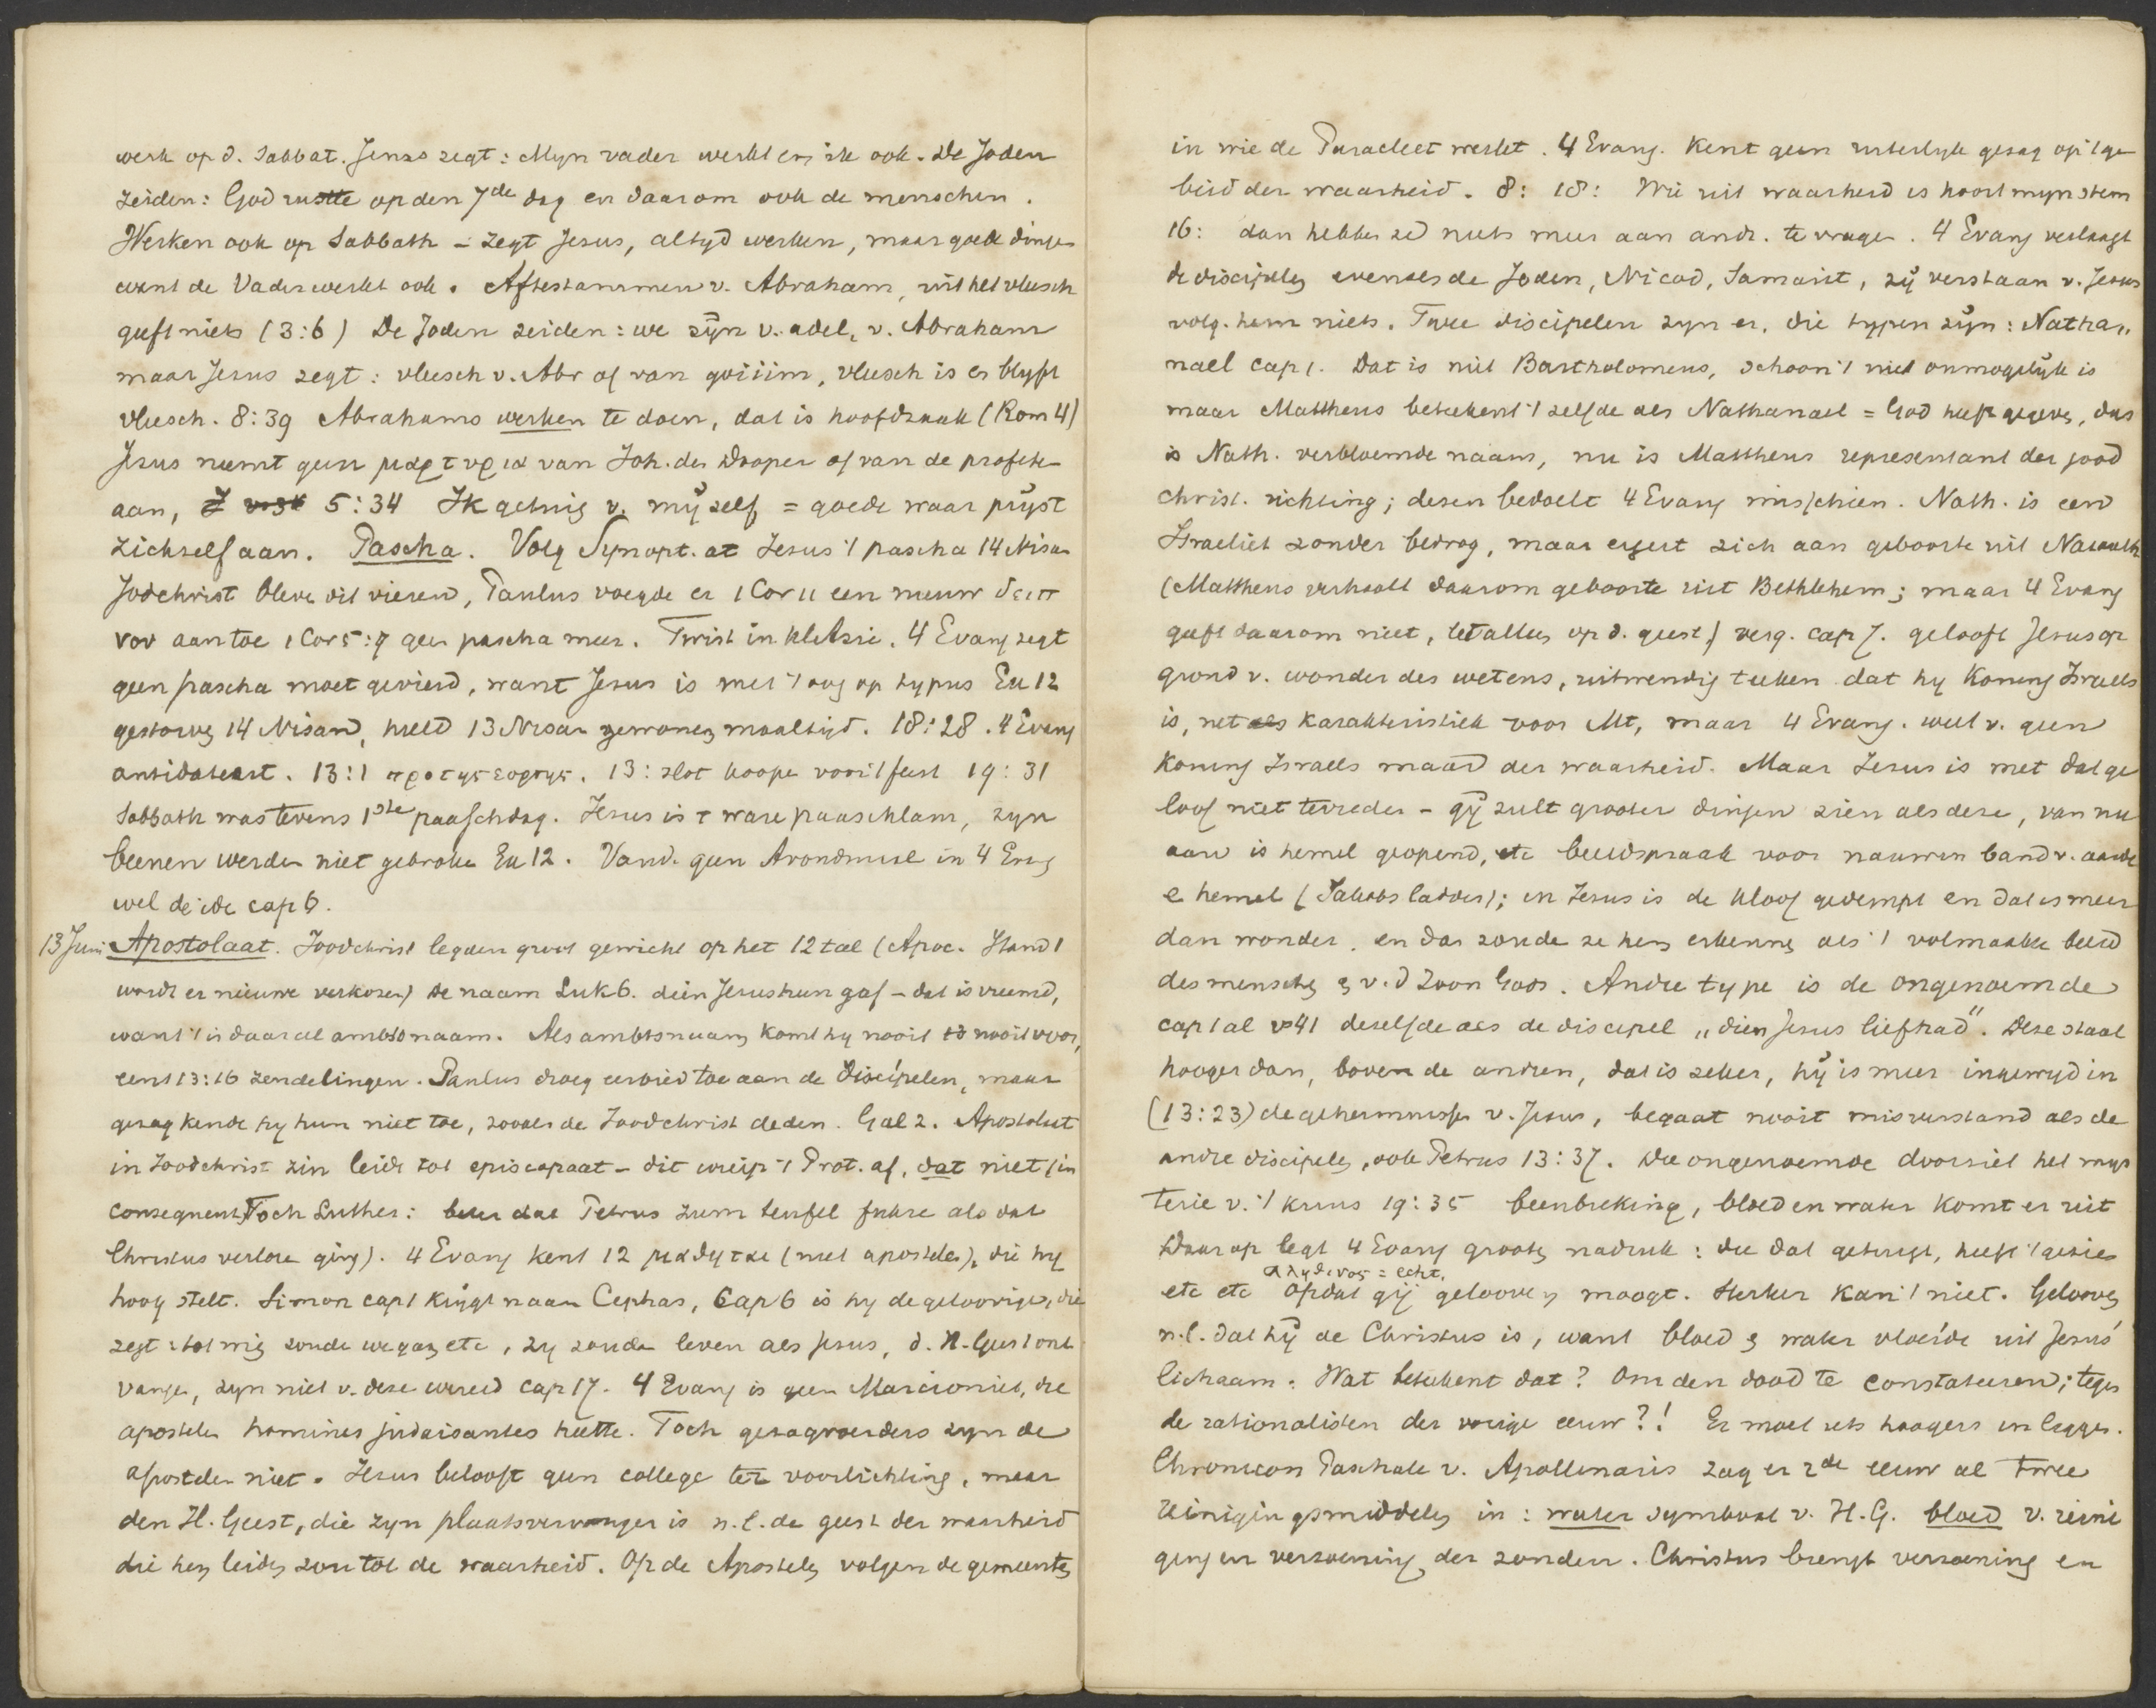 werk op d. Sabbat. Jezus zegt: Myn vader werkt en ik ook. De Joden
zeiden: God rustte op den 7de dag en daarom ook de menschen.
Werken ook op Sabbath – zegt Jesus, altyd werken, maar goede dingen
want de Vader werkt ook. Afstammen v. Abraham, uit het vleesch
geeft niets (3:6) De Joden zeiden: we zijn v. adel, v. Abraham
maar Jesus zegt: vleesch v. Abr of van goiiim, vleesch is en blyft
vleesch. 8:39 Abrahams werken te doen, dat is hoofdzaak (Rom 4)
Jesus neemt geen μαρτυρια van Joh. den Dooper of van de profeten
aan, 5:34 Ik getuig v. mijzelf = goede waar prijst
zichzelf aan. Pascha. Volg Synopt. at Jesus 't pascha 14 Nisan
Jodchrist bleven dit vieren, Paulus voegde er 1 Cor 11 een nieuw δειπ
νον aan toe 1 Cor 5:7 geen pascha meer. Twist in kl. Azie. 4 Evang zegt
geen pascha moet gevierd, want Jesus is met 't oog op typus Ex 12
gestorven 14 Nisan, hield 13 Nisan gewonen maaltijd. 18:28. 4 Evang
antidateert. 13:1 προ της εορτης. 13: slot koopen voor 't feest 19:31
Sabbath was tevens 1ste paaschdag. Jesus is 't ware paaschlam, zyn
beenen werden niet gebroken Ex 12. Vand. geen Avondmaal in 4 Evang
wel de idee cap 6.
13 Juni Apostolaat. Joodchrist legden groot gewicht op het 12 tal (Apoc. Hand 1
wordt er nieuwe verkozen) De naam Luk 6. dien Jesus hun gaf – dat is vreemd,
want 't is daar al ambtsnaam. Als ambtsnaam komt hy nooit voor,
eens 13:16 zendelingen. Paulus droeg eerbied toe aan de Discipelen, maar
gezag kende hy hun niet toe, zooals de Joodchrist deden. Gal 2. Apostolaat
in Joodchrist zin leidt tot episcopaat – dit wierp 't Prot. af, dat niet (in
consequent) Toch Luther: beter dat Petrus zum teufel fahre als dat
Christus verloren ging). 4 Evang kent 12 μαθηται (niet apostelen), die hy
hoog stelt. Simon cap 1 krijgt naam Cephas, Cap 6 is hy de geloovige, die
zegt: tot wien zouden we gaan etc, zy zouden leven als Jesus, d. H. Geest ont
vangen, zyn niet v. deze wereld cap 17. 4 Evang is geen Marcioniet, die
apostelen homines judaisantes heette. Toch gezagvoerders zyn de
apostelen niet. Jesus belooft geen college ter voorlichting, maar
den H. Geest, die zyn plaatsvervanger is n.l. de geest der waarheid
die hen leiden zou tot de waarheid. Op de Apostelen volgen de gemeenten
in wie de Paracleet werkt. 4 Evang. kent geen uiterlyk gezag op 't ge
bied der waarheid. 8:18: Wie uit waarheid is hoort myn stem
16: dan hebben ze niets meer aan andr. te vragen. 4 Evang verlaagt
de discipelen evenals de Joden, Nicod, Samarit, zij verstaan v. Jesus
volg. hem niets. Twee discipelen zyn er, die typen zijn: Natha„
nael cap 1. Dat is niet Bartholomeus, schoon 't niet onmogelijk is
maar Mattheus beteekent 't zelfde als Nathanael = God heeft gegeven, dus
is Nath. verbloemde naam, nu is Mattheus representant der jood
christ. richting; dezen bedoelt 4 Evang misschien. Nath. is een
Israeliet zonder bedrog, maar ergert zich aan geboorte uit Nazareth
(Mattheus verhaalt daarom geboorte uit Bethlehem; maar 4 Evang
geeft daarom niet, let alleen op d. geest) verg. cap 7. gelooft Jesus op
grond v. wonder des wetens, uitwendig teeken dat hy Koning Israels
is, net karakteristiek voor Mt, maar 4 Evang. weet v. geen
Koning Israels maar der waarheid. Maar Jesus is met dat ge
loof niet tevreden – gij zult grooter dingen zien als deze, van nu
aan is hemel geopend, etc beeldspraak voor nauwen band v. aarde
e hemel (Jakobs ladder); in Jesus is de kloof gedempt en dat is meer
dan wonder, en dan zouden ze hem erkennen als 't volmaakte beeld
des menschen v. d Zoon Gods. Andre type is de ongenoemde
cap 1 al vs 41 dezelfde als de discipel „dien Jesus liefhad". Deze staat
hooger dan, boven de andren, dat is zeker, hij is meer ingewyd in
(13:23) de geheimnissen v. Jesus, begaat nooit misverstand als de
andre discipelen, ook Petrus 13:37. De ongenoemde doorziet het mys
terie v. 't kruis 19:35 beenbreking, bloed en water komt er uit
Daarop legt 4 Evang grooten nadruk: die dat getuigt, heeft 't gezien
αληθινος = echt.
etc etc Opdat gij geloven moogt. Sterker kan 't niet. Gelooven
n.l. dat hij de Christus is, want bloed & water vloeide uit Jesus'
lichaam. Wat beteekent dat? Om den dood te constateeren; tegen
de rationalisten der vorige eeuw?! Er moet iets hoogers in liggen.
Chronicon Paschale v. Apollinaris zag er 2de eeuw al twee
reinigingsmiddelen in: water symbool v. H.G. bloed v. reini
ging en verzoening der zonden. Christus brengt verzoening en